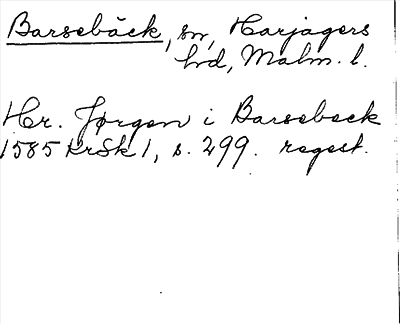 Barsebäck, sn, Harjagers
hd, Malm. l.
Hr. Jørgen i Barsebeck
1585 KrSk 1, s. 299. regest.